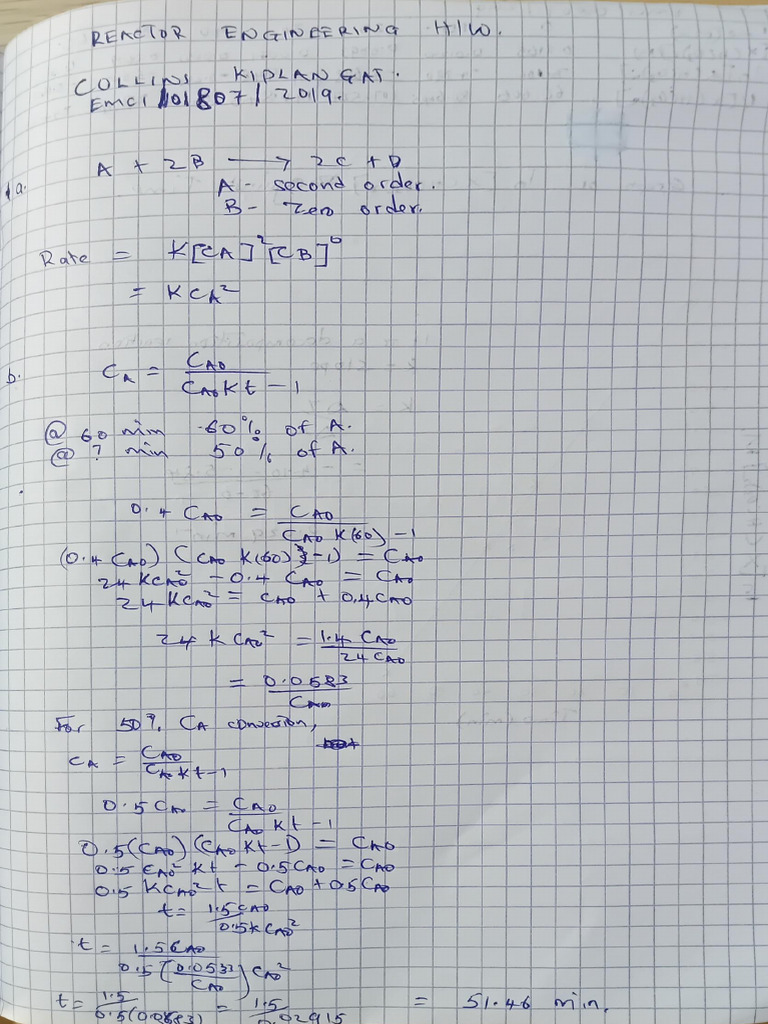 REACTOR ENGINEERING H/W.
COLLINS KIPLANGAT.
EMCI/01807/2019.
1a. A + 2B ⟶ 2C + D
A - second order.
B - Zero order.
Rate = K[CA]²[CB]⁰
= KCA²
b. CA = CA0 / (CA0Kt - 1)
@ 60 min 60% of A.
@ ? min 50% of A.
0.4 CA0 = CA0 / (CA0 K(60) - 1)
(0.4 CA0) (CA0 K(60) - 1) = CA0
24KCA0² - 0.4 CA0 = CA0
24KCA0² = CA0 + 0.4CA0
24 K CA0² = 1.4 CA0 / 24 CA0
= 0.0583 / CA0
For 50% CA conversion,
CA = CA0 / (CA0 Kt - 1)
0.5 CA0 = CA0 / (CA0 Kt - 1)
0.5(CA0) (CA0 Kt - 1) = CA0
0.5 CA0² Kt - 0.5CA0 = CA0
0.5 KCA0² t = CA0 + 0.5CA0
t = 1.5CA0 / 0.5KCA0²
t = 1.5CA0 / 0.5(0.0583 / CA0) CA0²
t = 1.5 / 0.5(0.0583) = 1.5 / 0.02915 = 51.46 min.